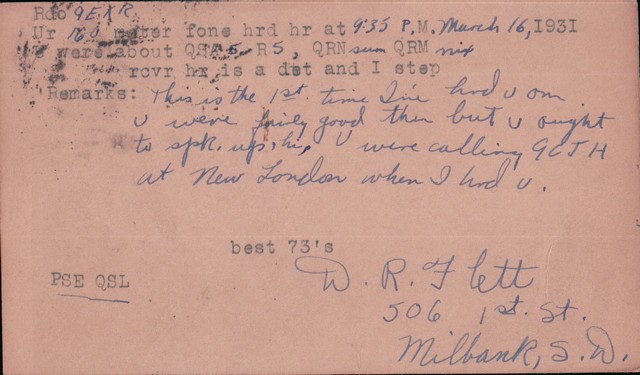 Rdo 9EXR
Ur 160 meter fone hrd hr at 9:35 P.M. March 16, 1931
were about QSA 5 R 5, QRN sum QRM nix
rcvr hr is a det and I step
Remarks: This is the 1st. time I've hrd u om
u were fairly good then but u ought
to spk. up, hi, U were calling 9CJH
at New London when I hrd u.
best 73's
PSE QSL
D. R. Flett
506 1st. St.
Milbank, S. D.